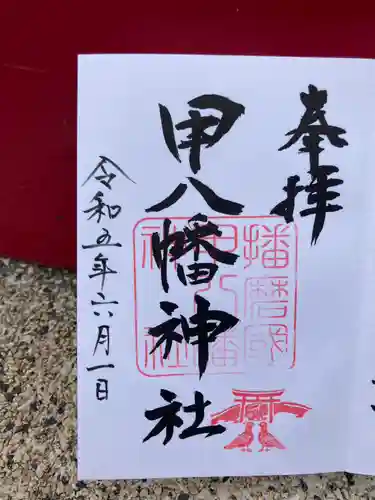 奉拝
播磨国
甲八幡
神社
甲八幡神社
令和五年六月一日